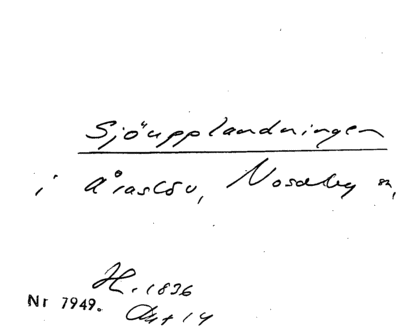 Sjöupplandningen
i Åraslöv, Nosaby m,
H. 1836
Nr 7949. Akt 14